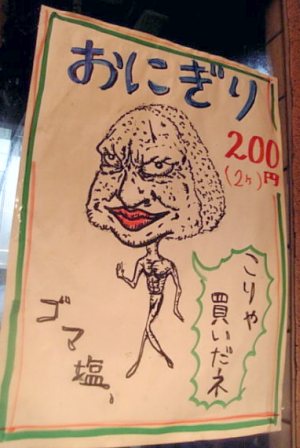 おにぎり
200
(2ヶ)円
こりゃ
買いだネ
ゴマ塩、